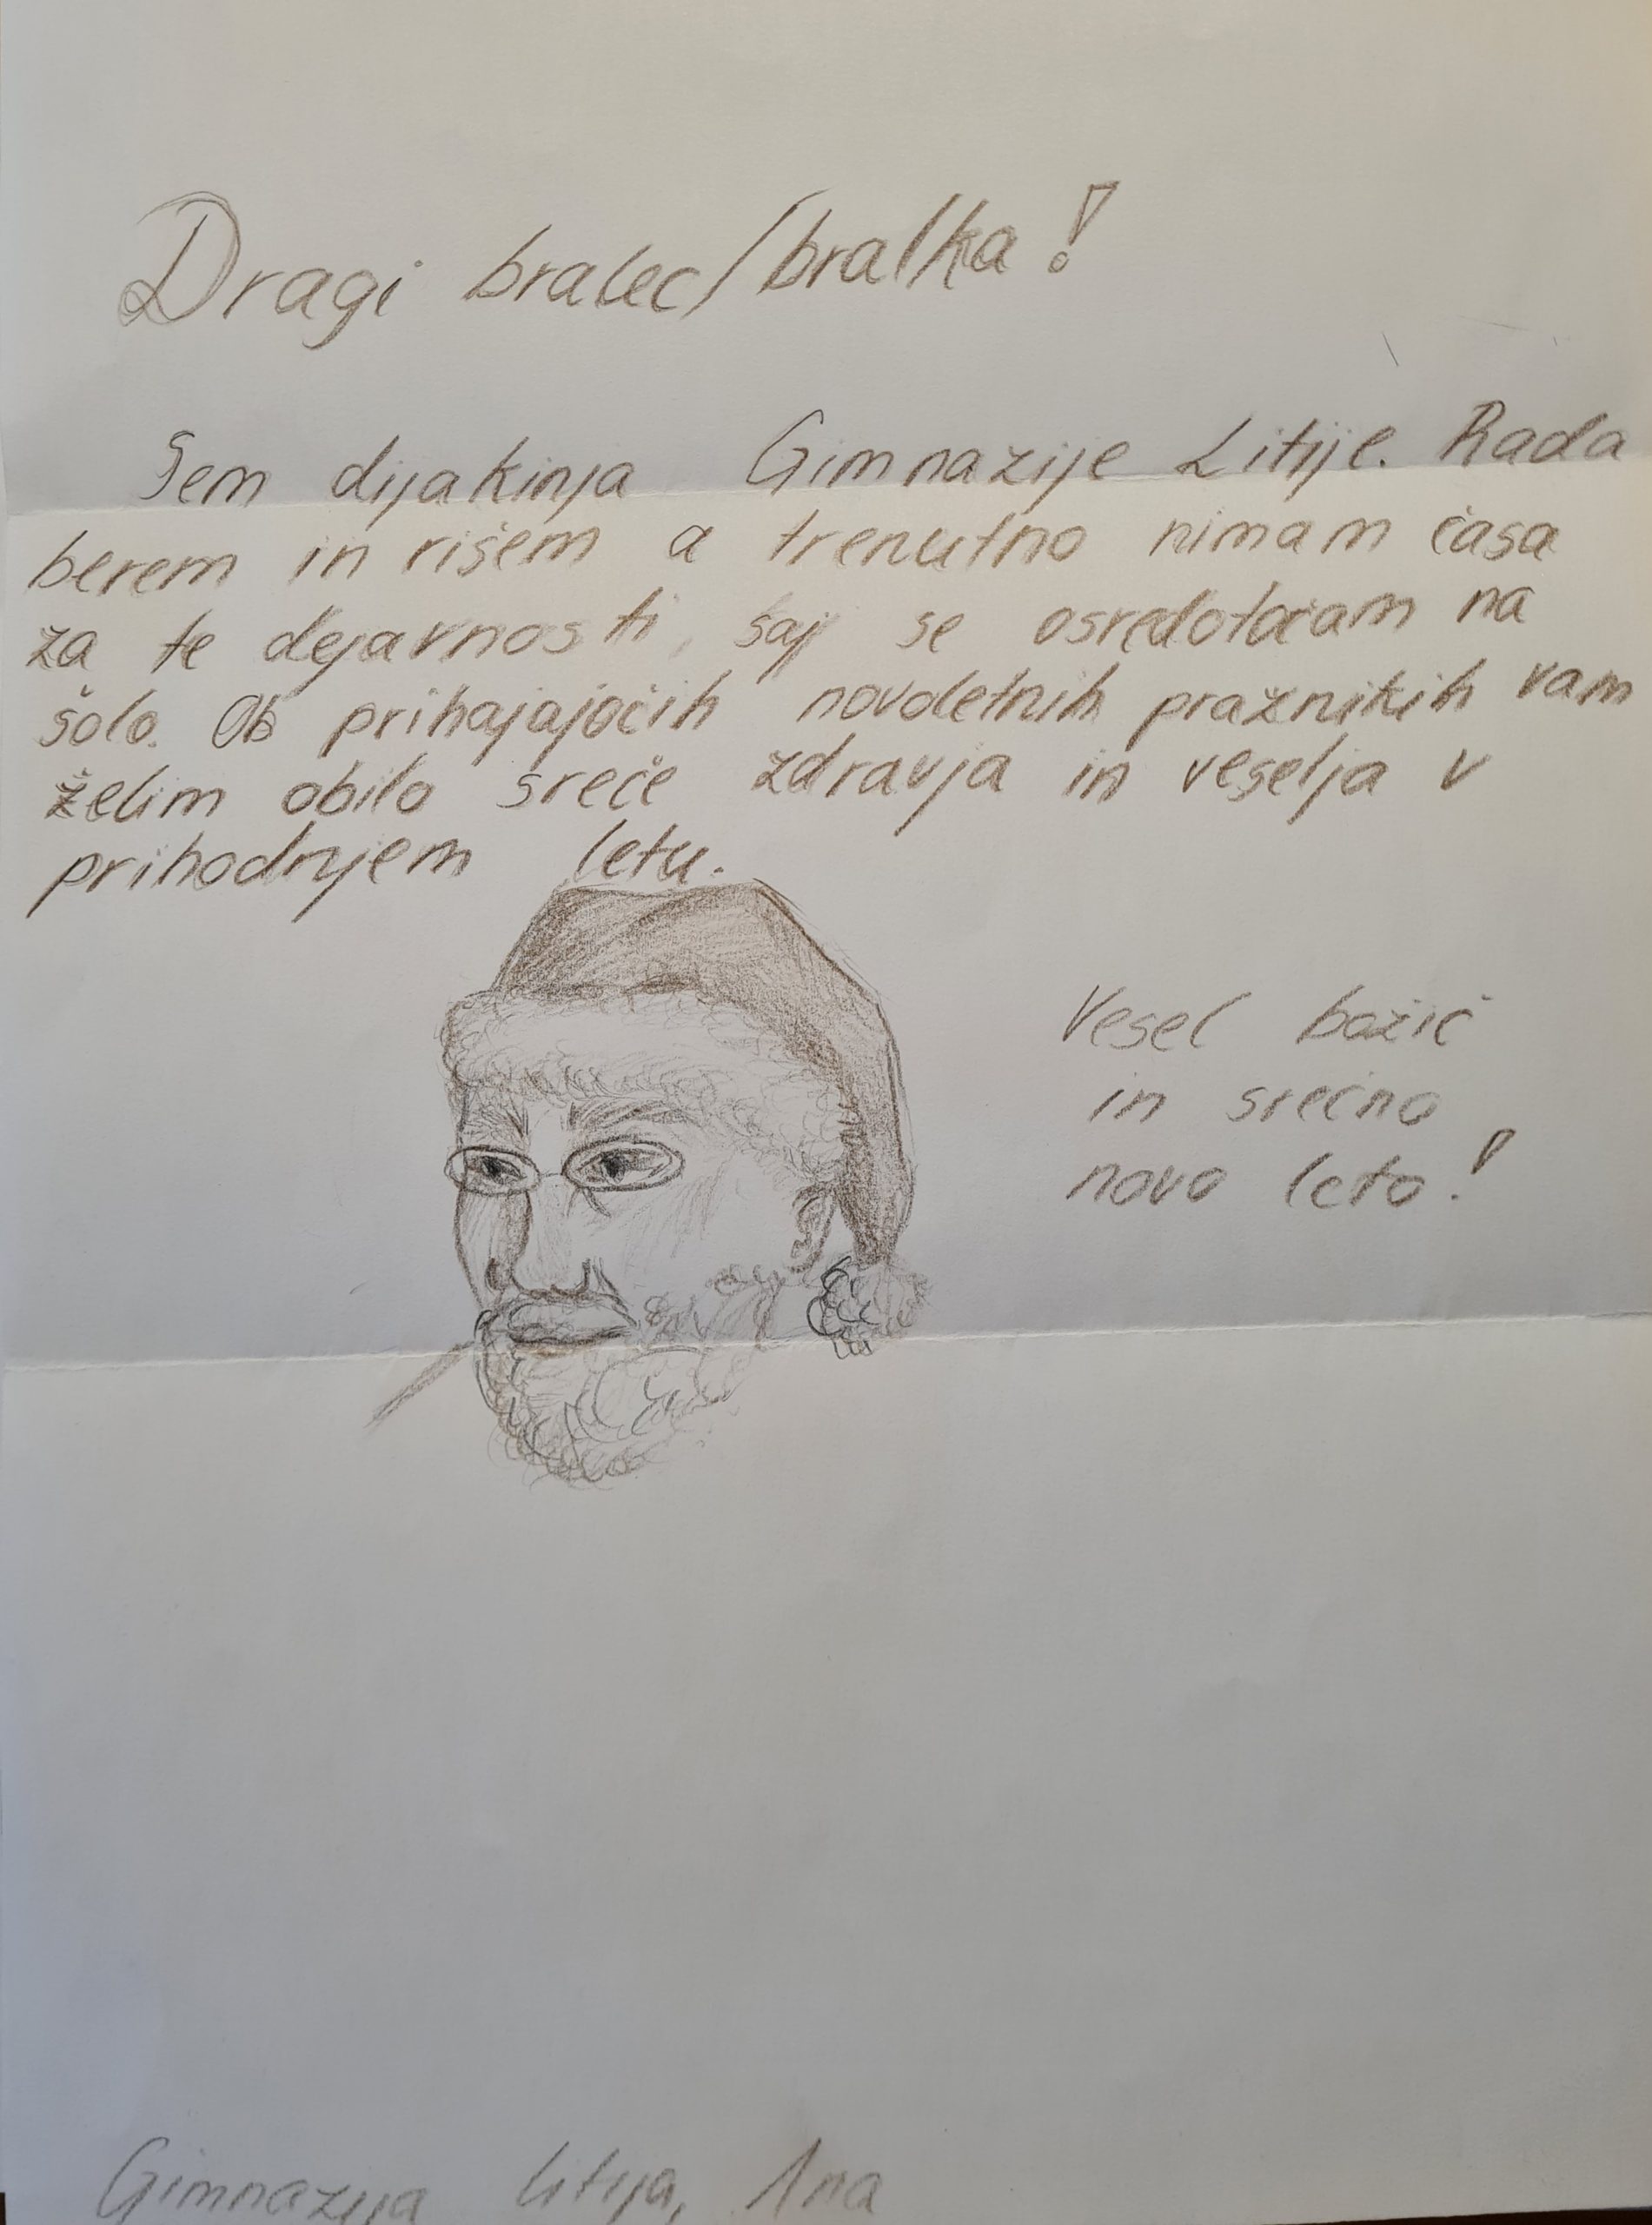 Dragi bralec/bralka!
Sem dijakinja Gimnazije Litije. Rada
berem in rišem a trenutno nimam časa
za te dejavnosti, saj se osredotočam na
šolo. Ob prihajajočih novoletnih praznikih vam
želim obilo sreče zdravja in veselja v
prihodnjem letu.
Vesel božič
in srečno
novo leto!
Gimnazija Litija, Ana